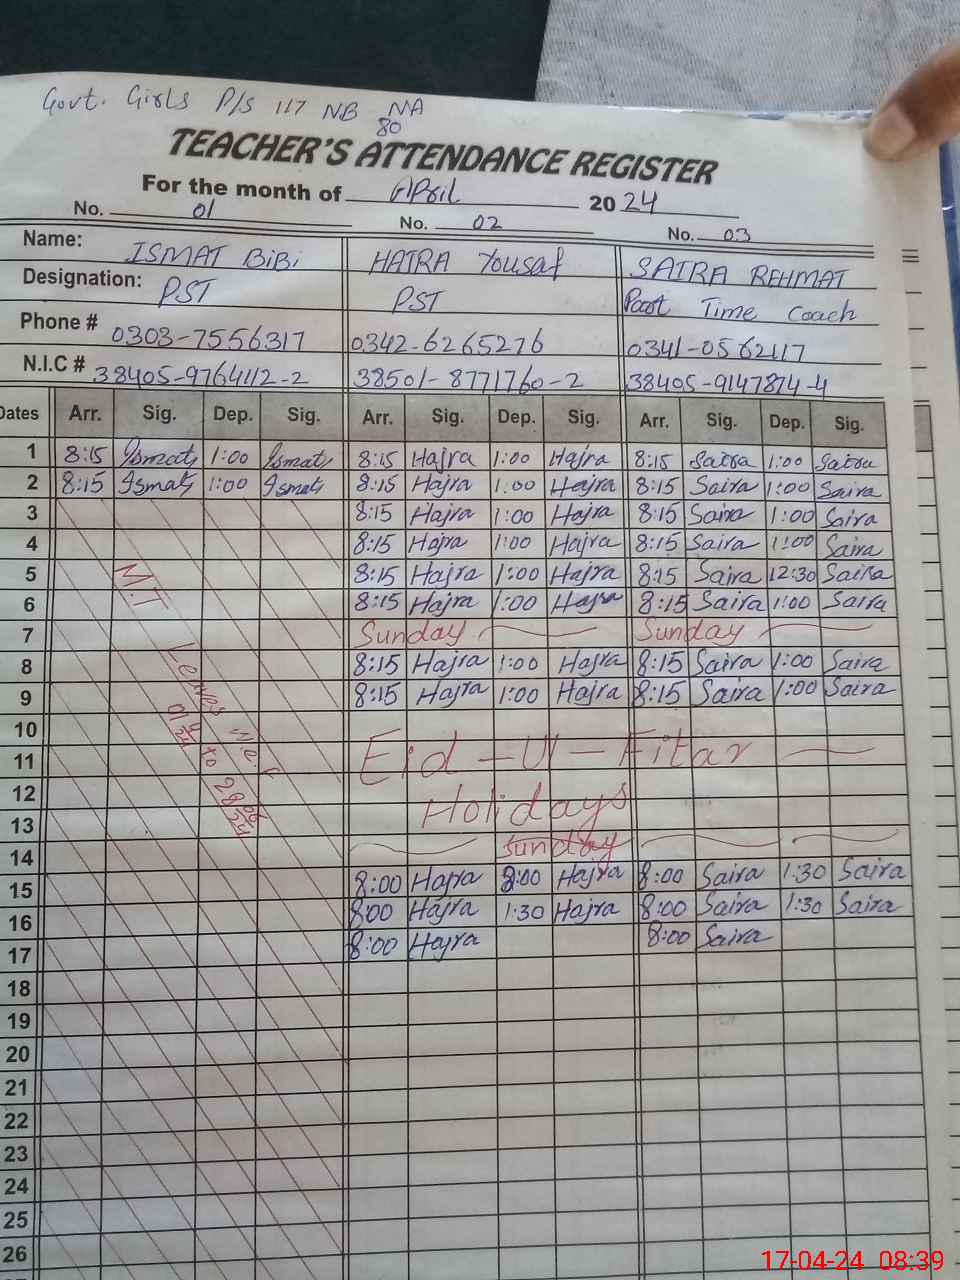 Govt. Girls P/S 117 NB NA
80
TEACHER'S ATTENDANCE REGISTER
For the month of April 2024
No. 01 No. 02 No. 03
Name: ISMAT BiBi HAJRA Yousaf SAIRA REHMAT
Designation: PST PST Part Time Coach
Phone # 0303-7556317 0342-6265276 0341-0562117
N.I.C # 38405-9764112-2 38501-8771760-2 38405-9147874-4
Dates Arr. Sig. Dep. Sig. Arr. Sig. Dep. Sig. Arr. Sig. Dep. Sig.
1 8:15 Ismat 1:00 Ismat 8:15 Hajra 1:00 Hajra 8:15 Saira 1:00 Saira
2 8:15 Ismat 1:00 Ismat 8:15 Hajra 1:00 Hajra 8:15 Saira 1:00 Saira
3 8:15 Hajra 1:00 Hajra 8:15 Saira 1:00 Saira
4 8:15 Hajra 1:00 Hajra 8:15 Saira 1:00 Saira
5 8:15 Hajra 1:00 Hajra 8:15 Saira 12:30 Saira
6 8:15 Hajra 1:00 Hajra 8:15 Saira 1:00 Saira
7 Sunday Sunday
8 8:15 Hajra 1:00 Hajra 8:15 Saira 1:00 Saira
9 8:15 Hajra 1:00 Hajra 8:15 Saira 1:00 Saira
M.T
Leaves w.e.f
to
10
11 Eid-Ul-Fitar
12
13 Holidays
14 Sunday
15 8:00 Hajra :00 Hajra 8:00 Saira 1:30 Saira
16 8:00 Hajra 1:30 Hajra 8:00 Saira 1:30 Saira
17 8:00 Hajra 8:00 Saira
18
19
20
21
22
23
24
25
26
17-04-24 08:39